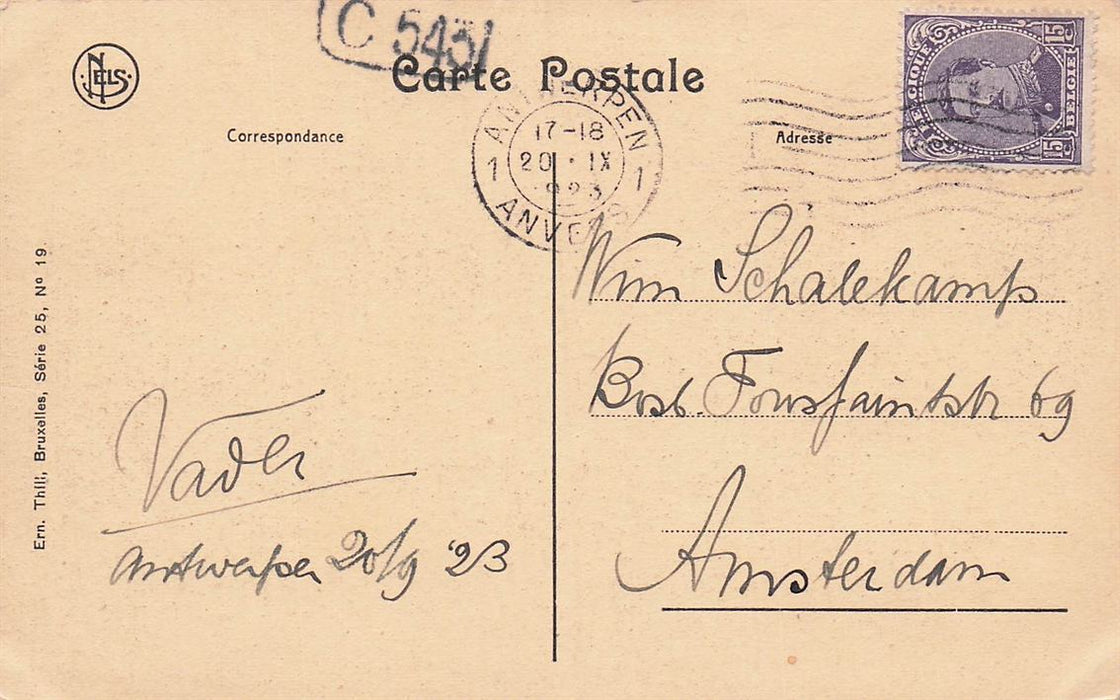 C 5431
NELS
Carte Postale
Correspondance
Adresse
ANTWERPEN
17-18
20 · IX
923
1 1
ANVERS
BELGIQUE
BELGIË
15
15
Wim Schalekamp
Bosb. 69
Amsterdam
Vader
Antwerpen 20/9 '23
Ern. Thill, Bruxelles, Série 25, Nº 19.